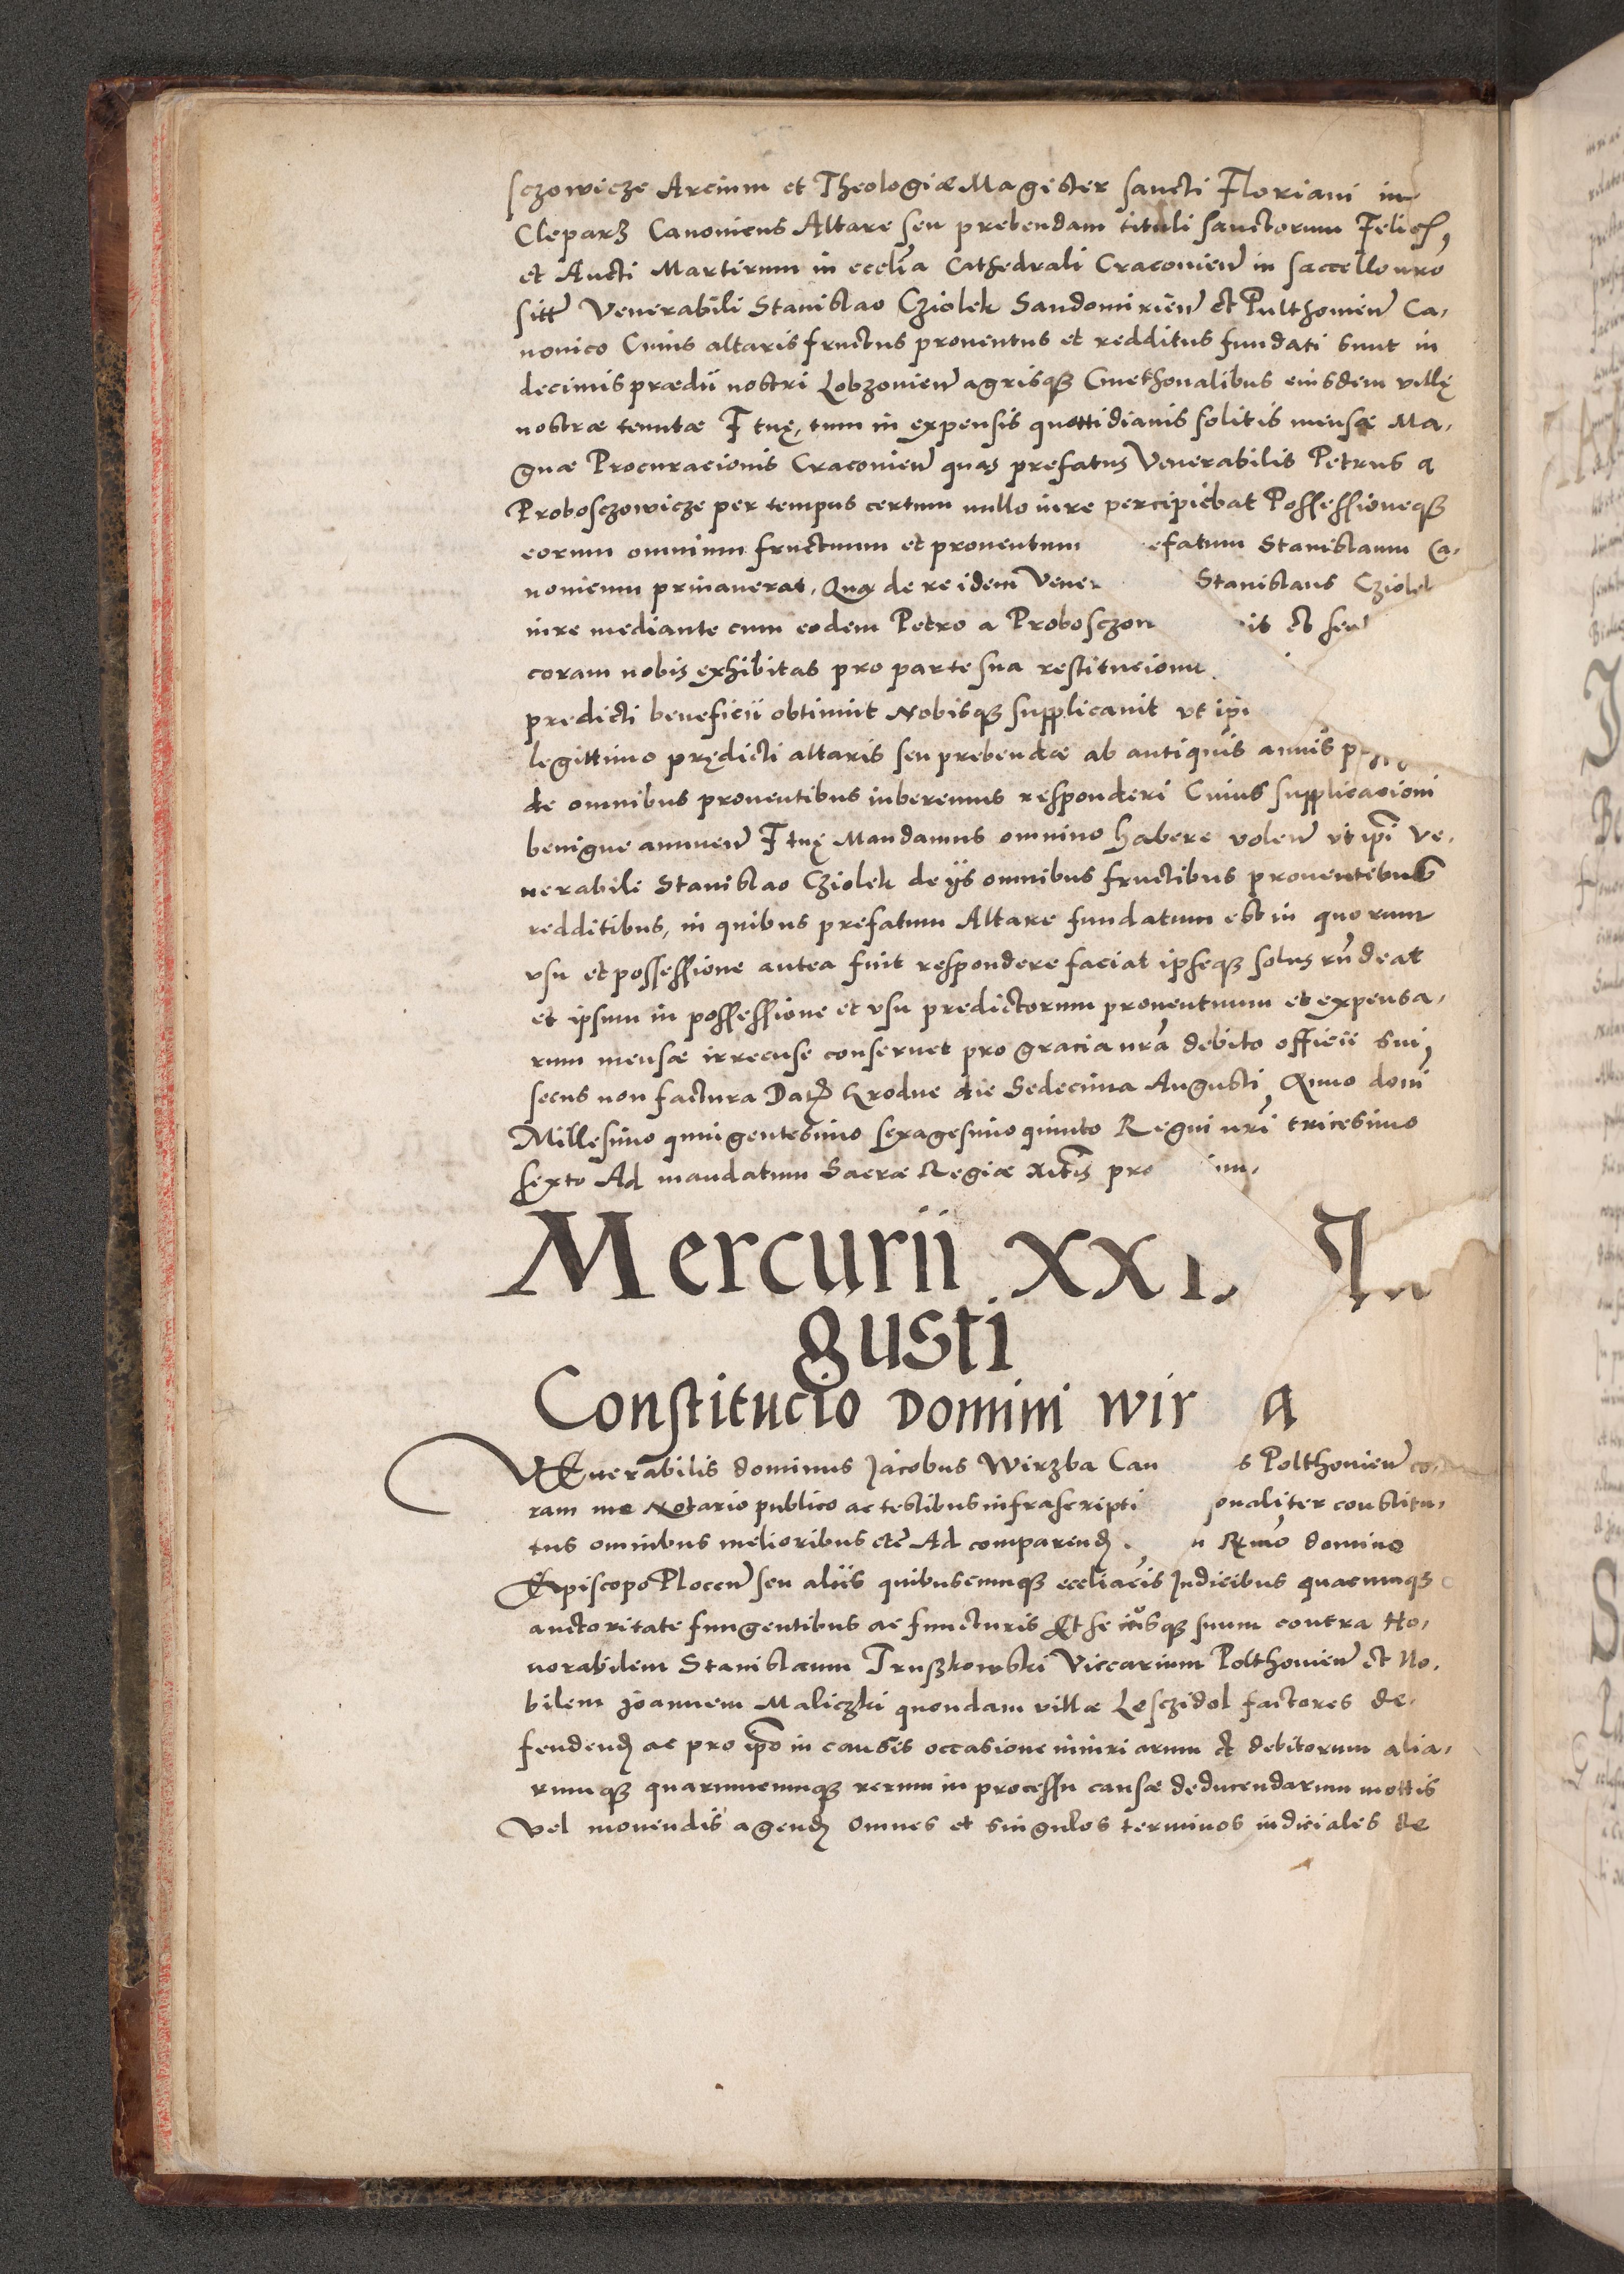 sczowicze Arcium et Theologiæ Magister sancti Floriani in
Cleparz Canonicus Altare seu prebendam tituli sanctorum Felicis,
et Aucti Martirum in eccl͞ia Cathedrali Cracovien̄ in saccello nr͞o
sitt̄ Venerabili Stanislao Cziolek Sandomirien̄ et Pulthovien̄ Ca,
nonico Cuius altaris fructus proventus et redditus fundati sunt in
decimis prædii nostri Lobzovien̄ agrisqꝫ Cmethonalibus eiusdem villę
nostræ tenutæ F tuę, tum in expensis quottidianis solitis mensæ Ma,
gnæ Procuracionis Cracovien̄ quas prefatus Venerabilis Petrus a
Probosczowicze per tempus certum nullo iure percipiebat Possessioneqꝫ
eorum omnium fructuum et proventuum efatum Stanislaum Ca,
nonicum privaverat, Qua de re idem Vener Stanislaus Cziolek
iure mediante cum eodem Petro a Probosczow it et sen
coram nobis exhibitas pro parte sua restitucionu
predicti beneficii obtinuit Nobisqꝫ supplicavit ut ip̄i
legittimo prędicti altaris seu prebendæ ab antiquis annis p
de omnibus proventibus iuberemus responderi Cuius supplicacioni
benigne annuen̄ F tuę Mandamus omnino habere volen̄ ut ip̄i Ve,
nerabili Stanislao Cziolek de ijs omnibus fructibus proventibus
redditibus, in quibus prefatum Altare fundatum est in quorum
usu et possessione antea fuit respondere faciat ipseqꝫ solus rn̄deat
et ipsum in possessione et usu predictorum proventuum et expensa,
rum mensæ irrecuse conservet pro gracia nr͞a debito officii sui,
secus non factura Dat̄ Grodne die Sedecima Augusti, Anno dom̄
Millesimo quingentesimo sexagesimo quinto Regni nr͞i tricesimo
sexto Ad mandatum Sacræ Regiæ M̄tis pro iu,
Mercurii XXI, Au
gusti
Constitucio Domini Wir a
Venerabilis dominus Jacobus Wirzba Can s Polthovien̄ co,
ram me Notario publico ac testibus infrascripti onaliter constitu,
tus omnibus melioribus etc̄ Ad comparend̄ m R͞mo domino
Episcopo Plocen̄ seu aliis quibuscunqꝫ eccl͞iacis Judicibus quacunqꝫ
auctoritate fungentibus ac functuris Et se iusqꝫ suum contra Ho,
norabilem Stanislaum Truszkowski Viccarium Polthovien̄ et No,
bilem Joannem Maliczki quondam villæ Lesczidol factores de,
fendend̄ ac pro ip̄o in causis occasione iniuriarum et debitorum alia,
rumqꝫ quarumcunqꝫ rerum in processu causæ deducendarum mottis
Vel movendis agend̄ Omnes et singulos terminos iudiciales de